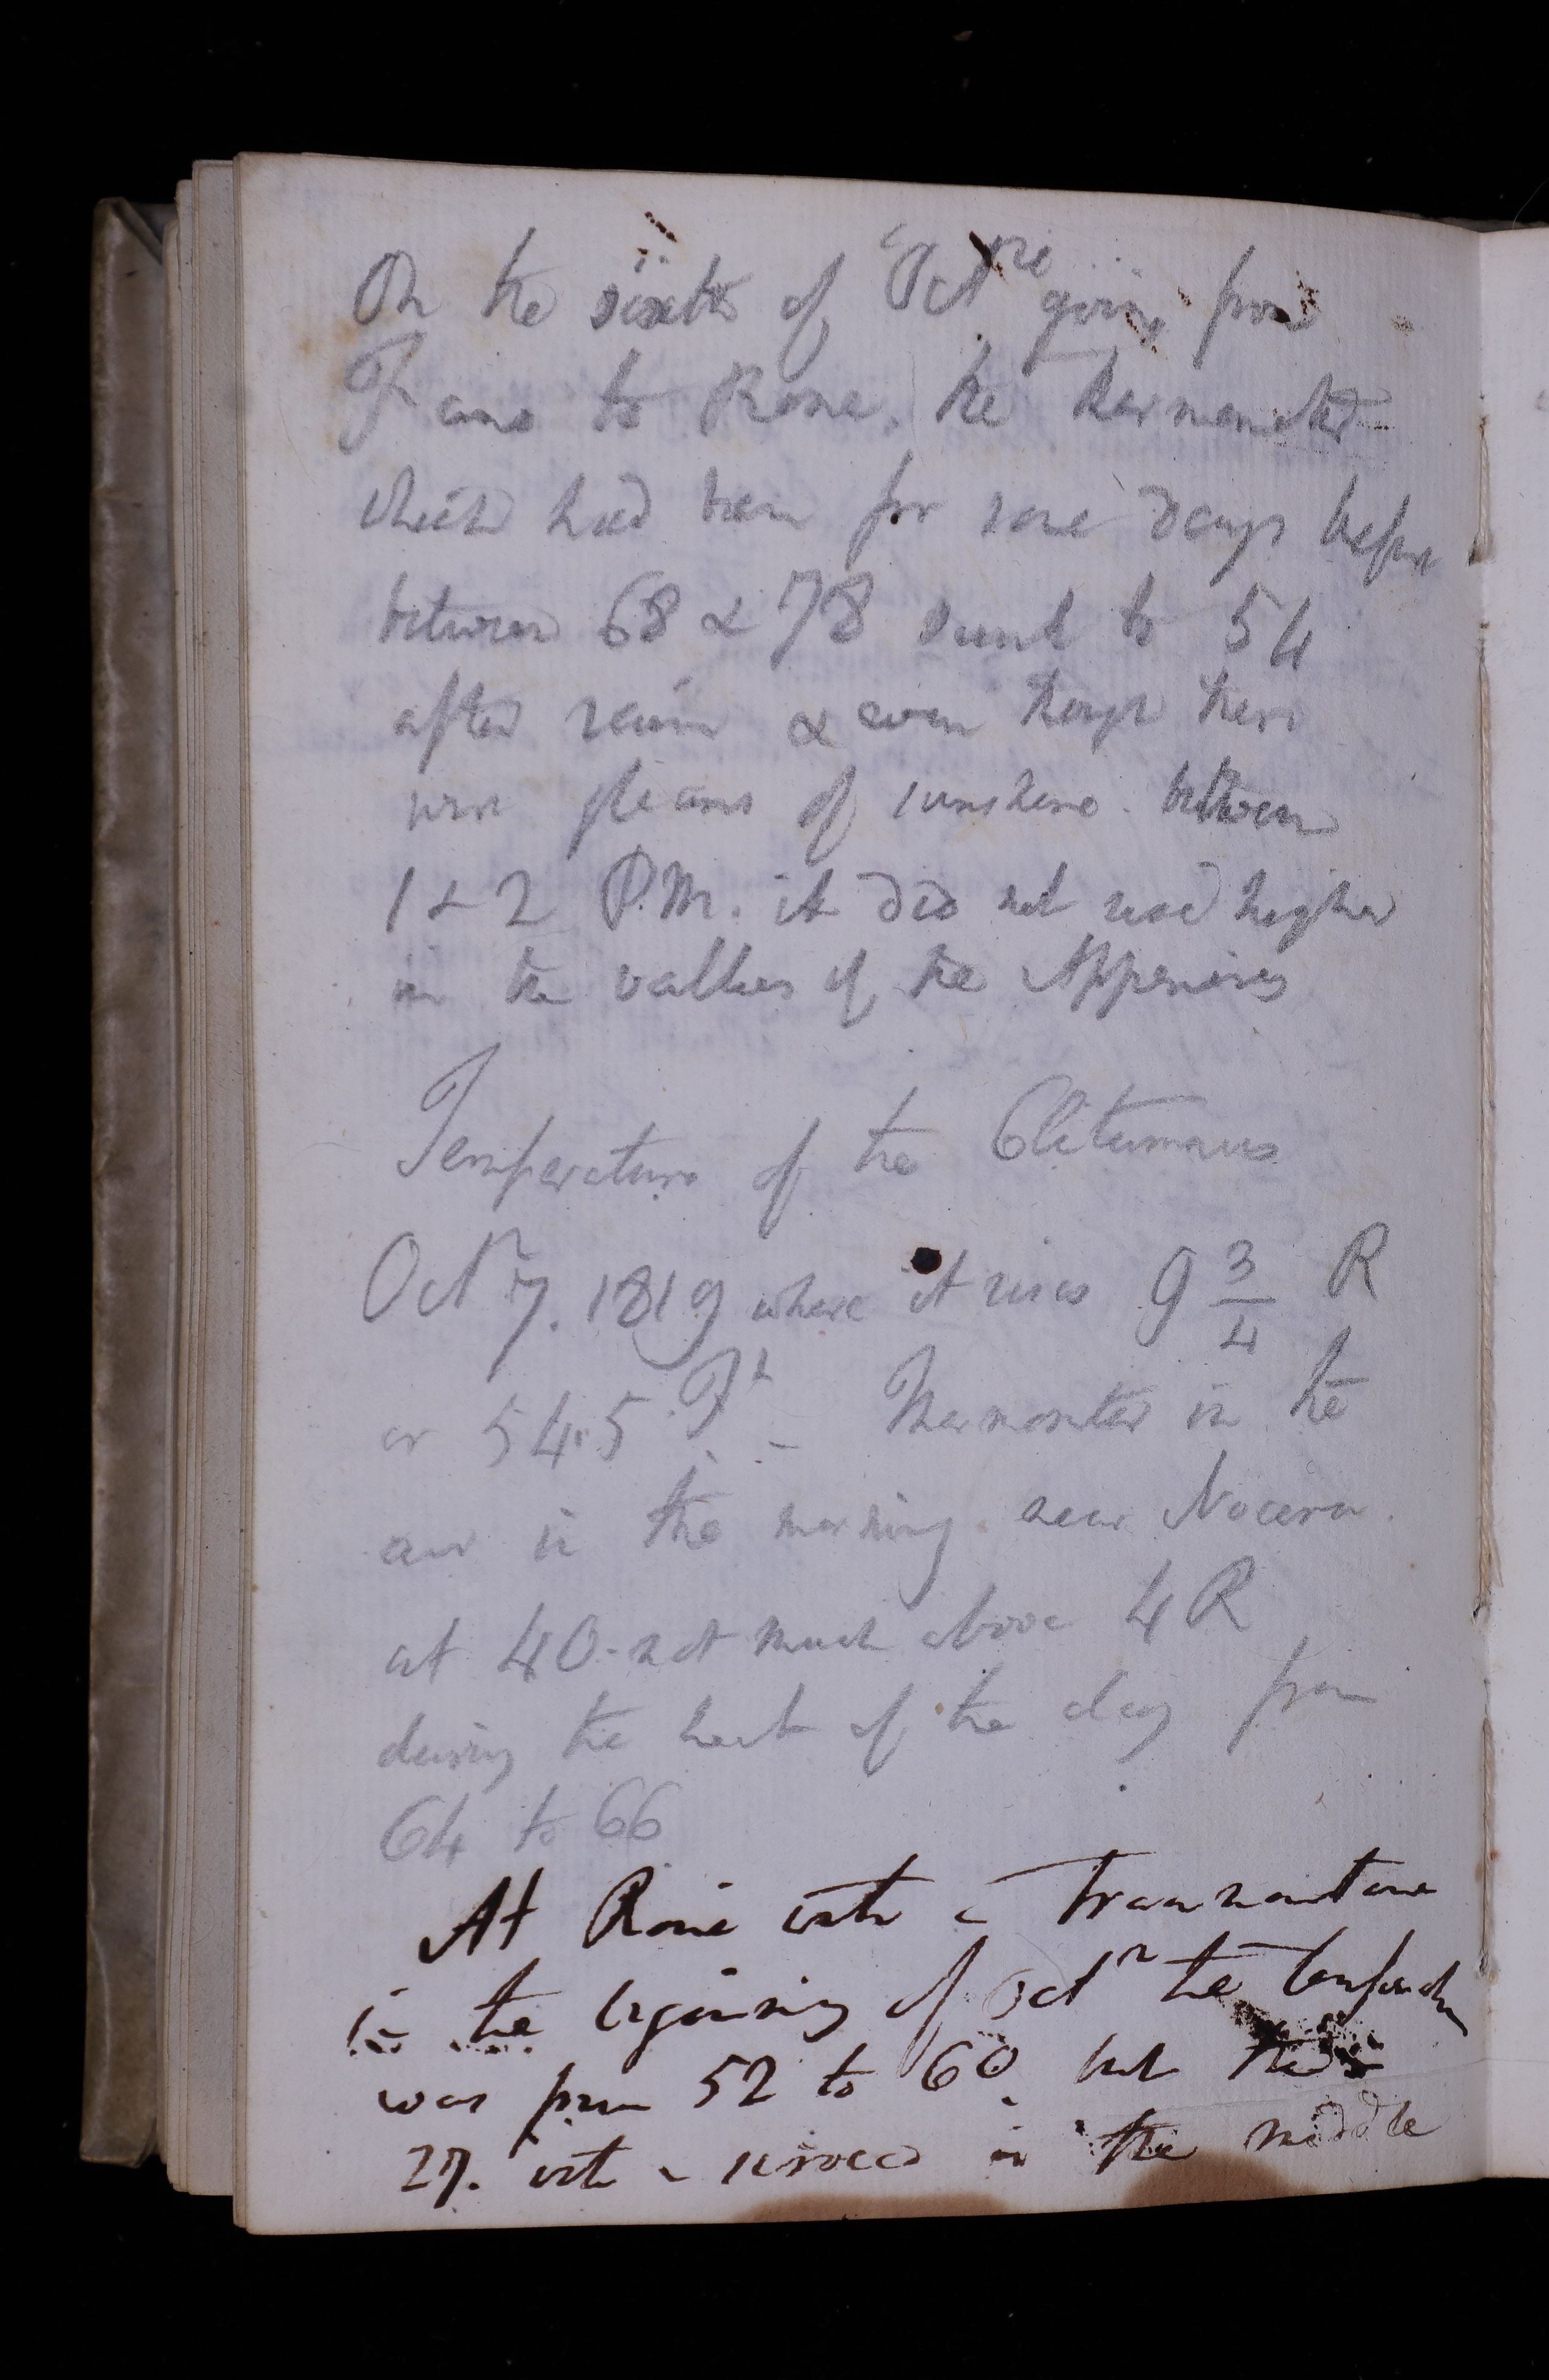 On the sixth of Oct^re going from
Fano to Rome, the thermometer
which had been for some days before
between 68 & 78 sunk to 54
after rain & even though there
were gleams of sunshine between
1 & 2 P.M. it did not rise higher
in the vallies of the Appenines
Temperature of the Clitumnus
Oct^r 7. 1819 where it rises 9 3/4 R
or 54.5 F^t - Thermometer in the
air in the morning near Nocera.
at 40 - not much above 4 R
during the heat of the day from
64 to 66
At Rome with a Tramontane
in the beginning of Oct^r the temperature
was from 52 to 60 but this
27. with a scirocco in the middle